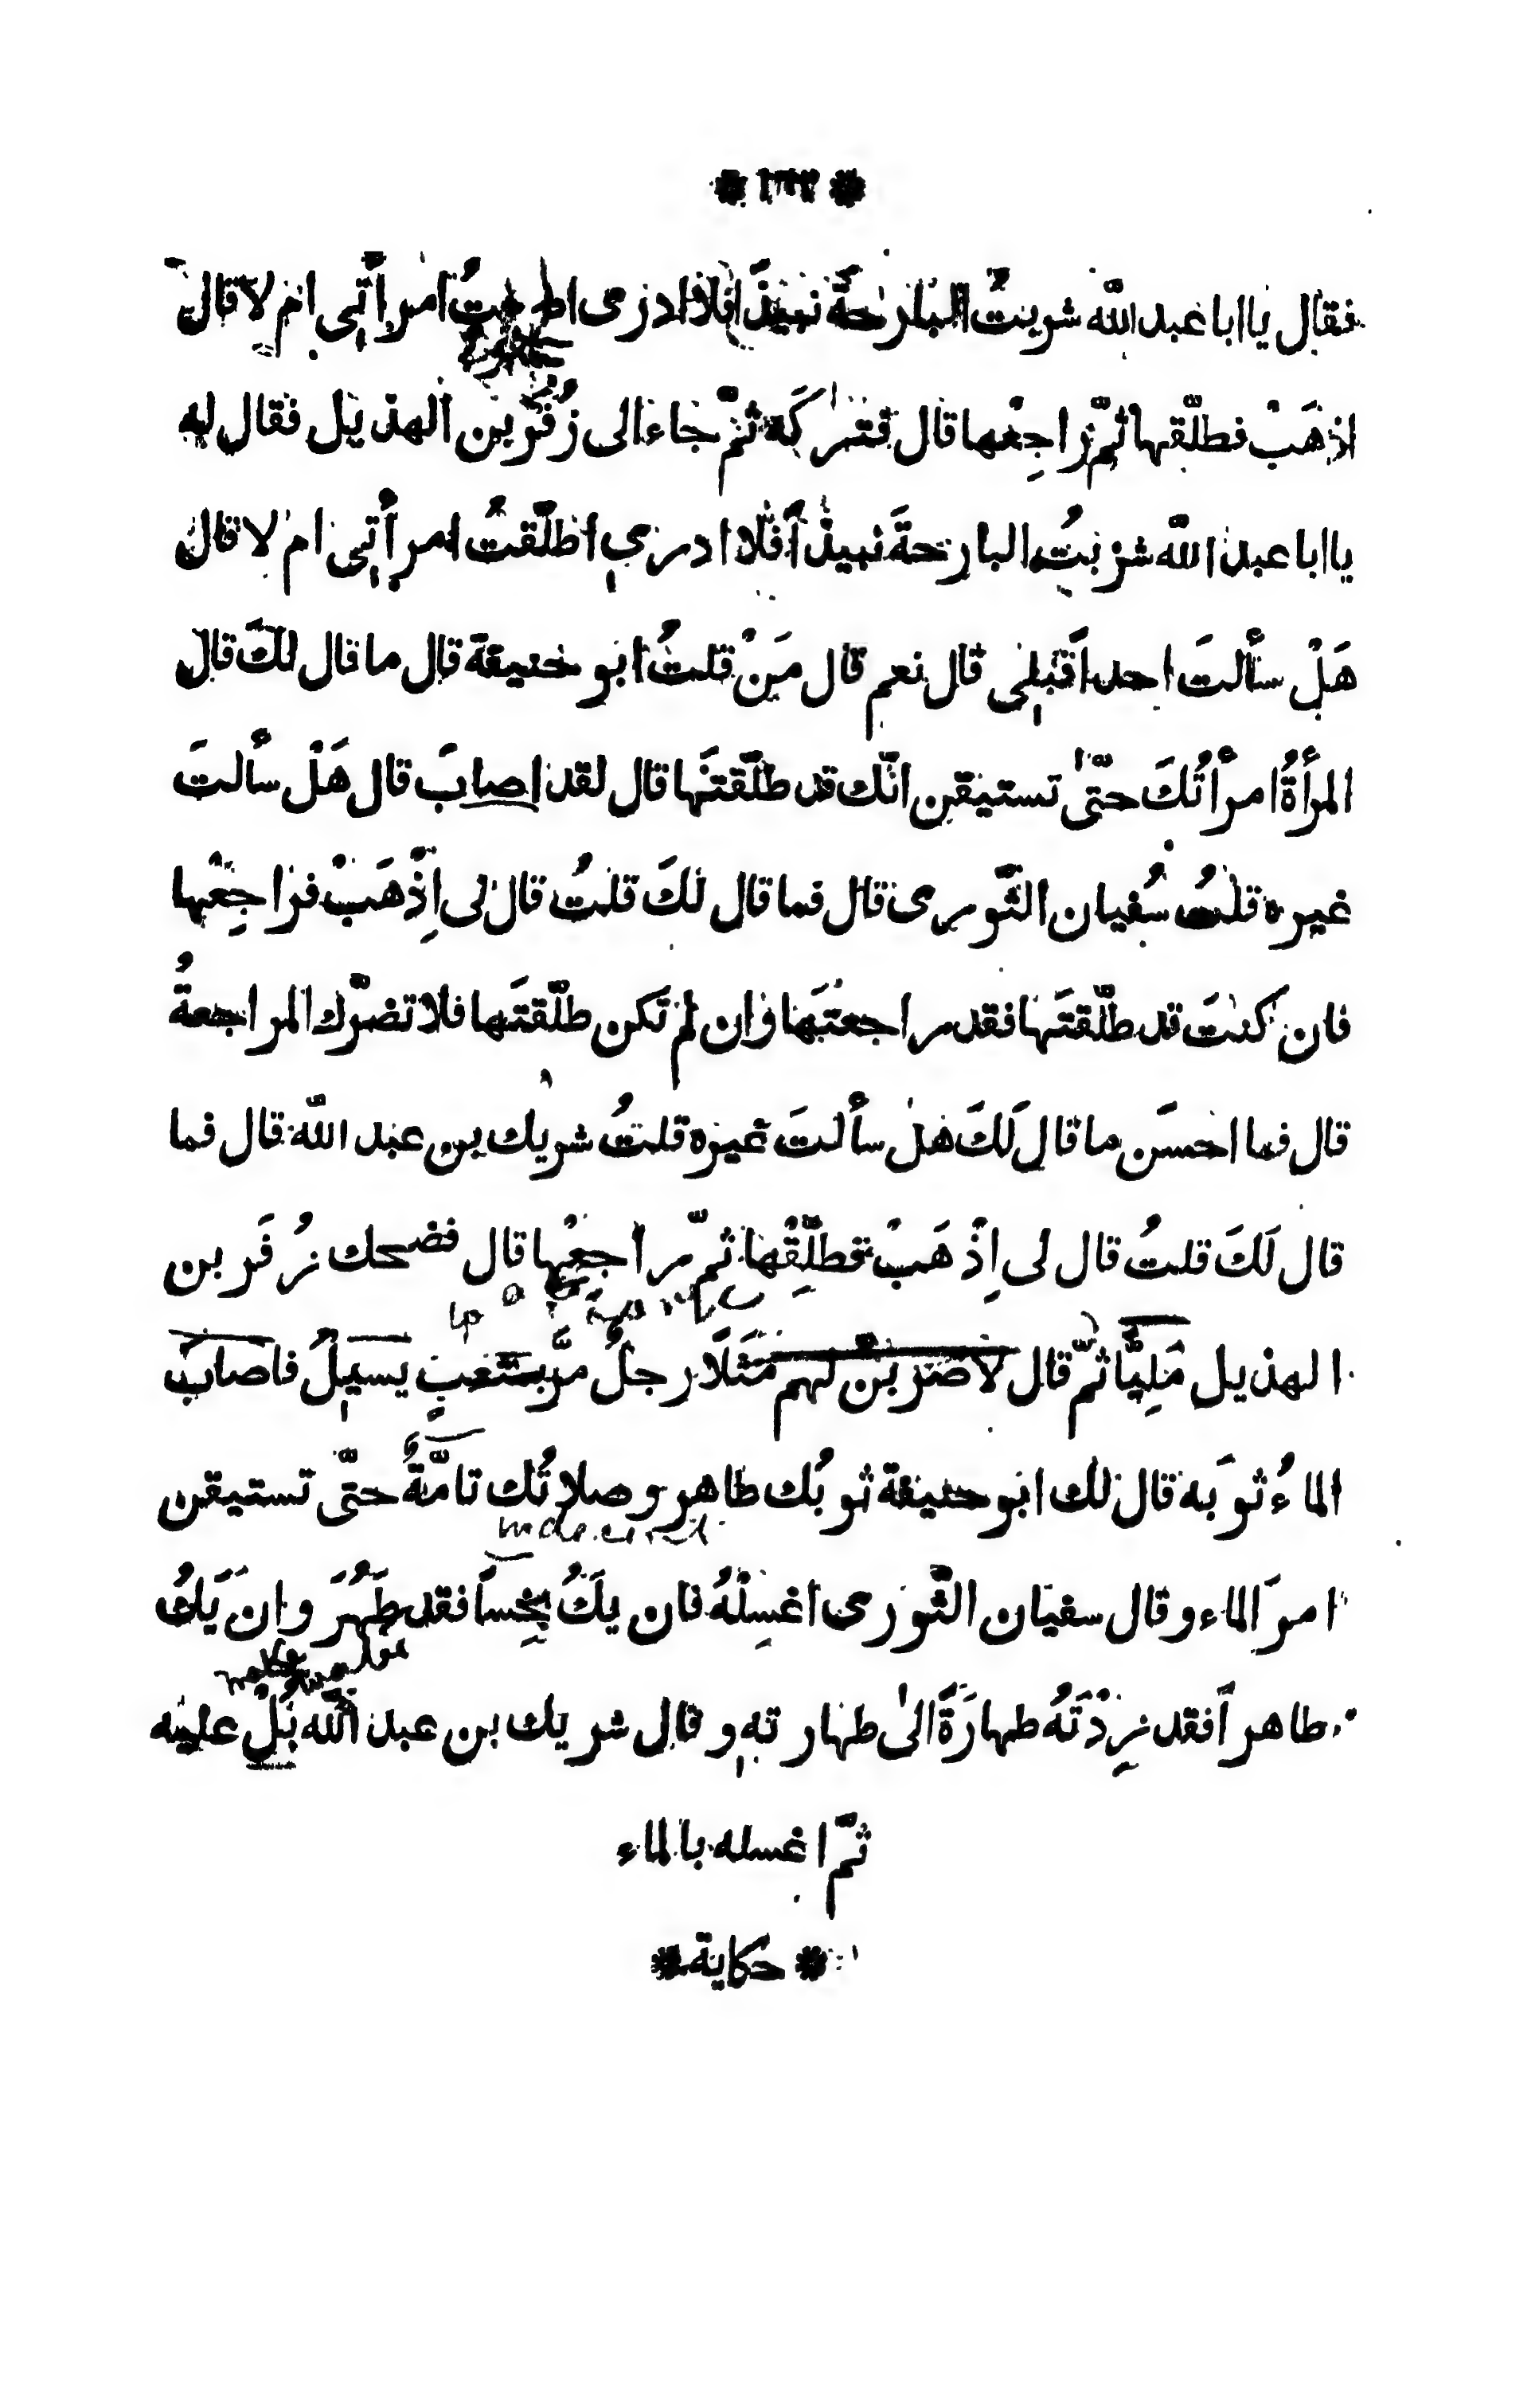 فقال يا ابا عبد الله شربتُ البارحةَ نبيذًا فلا ادرى امرأتِى ام لا قال
اذهَبْ فطلّقها ثمّ راجِعْها قال فتركَه ثمّ جاء الى زُفَر بن الهذيل فقال له
يا ابا عبد الله شرْبتُ البارحةَ نبيذًا فلا ادرى اطلّقتُ امرأتِى ام لا قال
هَلْ سألتَ احداً قبْلِى قال نعم قال مَنْ قلتُ ابو حنيفة قال ما قال لكَ قال
المرأةُ امرأتُكَ حتّى تستيقن انّك قد طلّقتَها قال لقد اصابَ قال هَلْ سألتَ
غيره قلتُ سُفيان الثّورى قال فما قال لكَ قلتُ قال لى اِذْهَبْ فراجِعْها
فان كنتَ قد طلّقتَها فقد راجعتَها وان لم تَكن طلّقتَها فلا تضرّك المراجعةُ
قال فما احسَن ما قال لَكَ هل سألتَ غيره قلتُ شريك بن عبد الله قال فما
قال لَكَ قلتُ قال لى اِذْهَبْ فطلِّقْها ثمّ راجِعْها قال فضحك زُفَر بن
الهذيل مَلِيًّا ثمّ قال لاضربَنّ لهم مَثَلًا رجلٌ مرَّ بمَثعبٍ يسيلُ فاصابَ
الماءُ ثوبَه قال لك ابو حنيفة ثوبُك طاهر وصلاتُك تامّةٌ حتّى تستيقن
امرَ الماء وقال سفيان الثّورى اغسِلْهُ فان يكُ نجِساً فقد طَهُرَ وان يَكُ
طاهراً فقد زِدْتَهُ طهارَةً الىٰ طهارتهِ وقال شريك بن عبد الله بُلْ عليه
ثمّ اغسله بالماء
* حكاية *